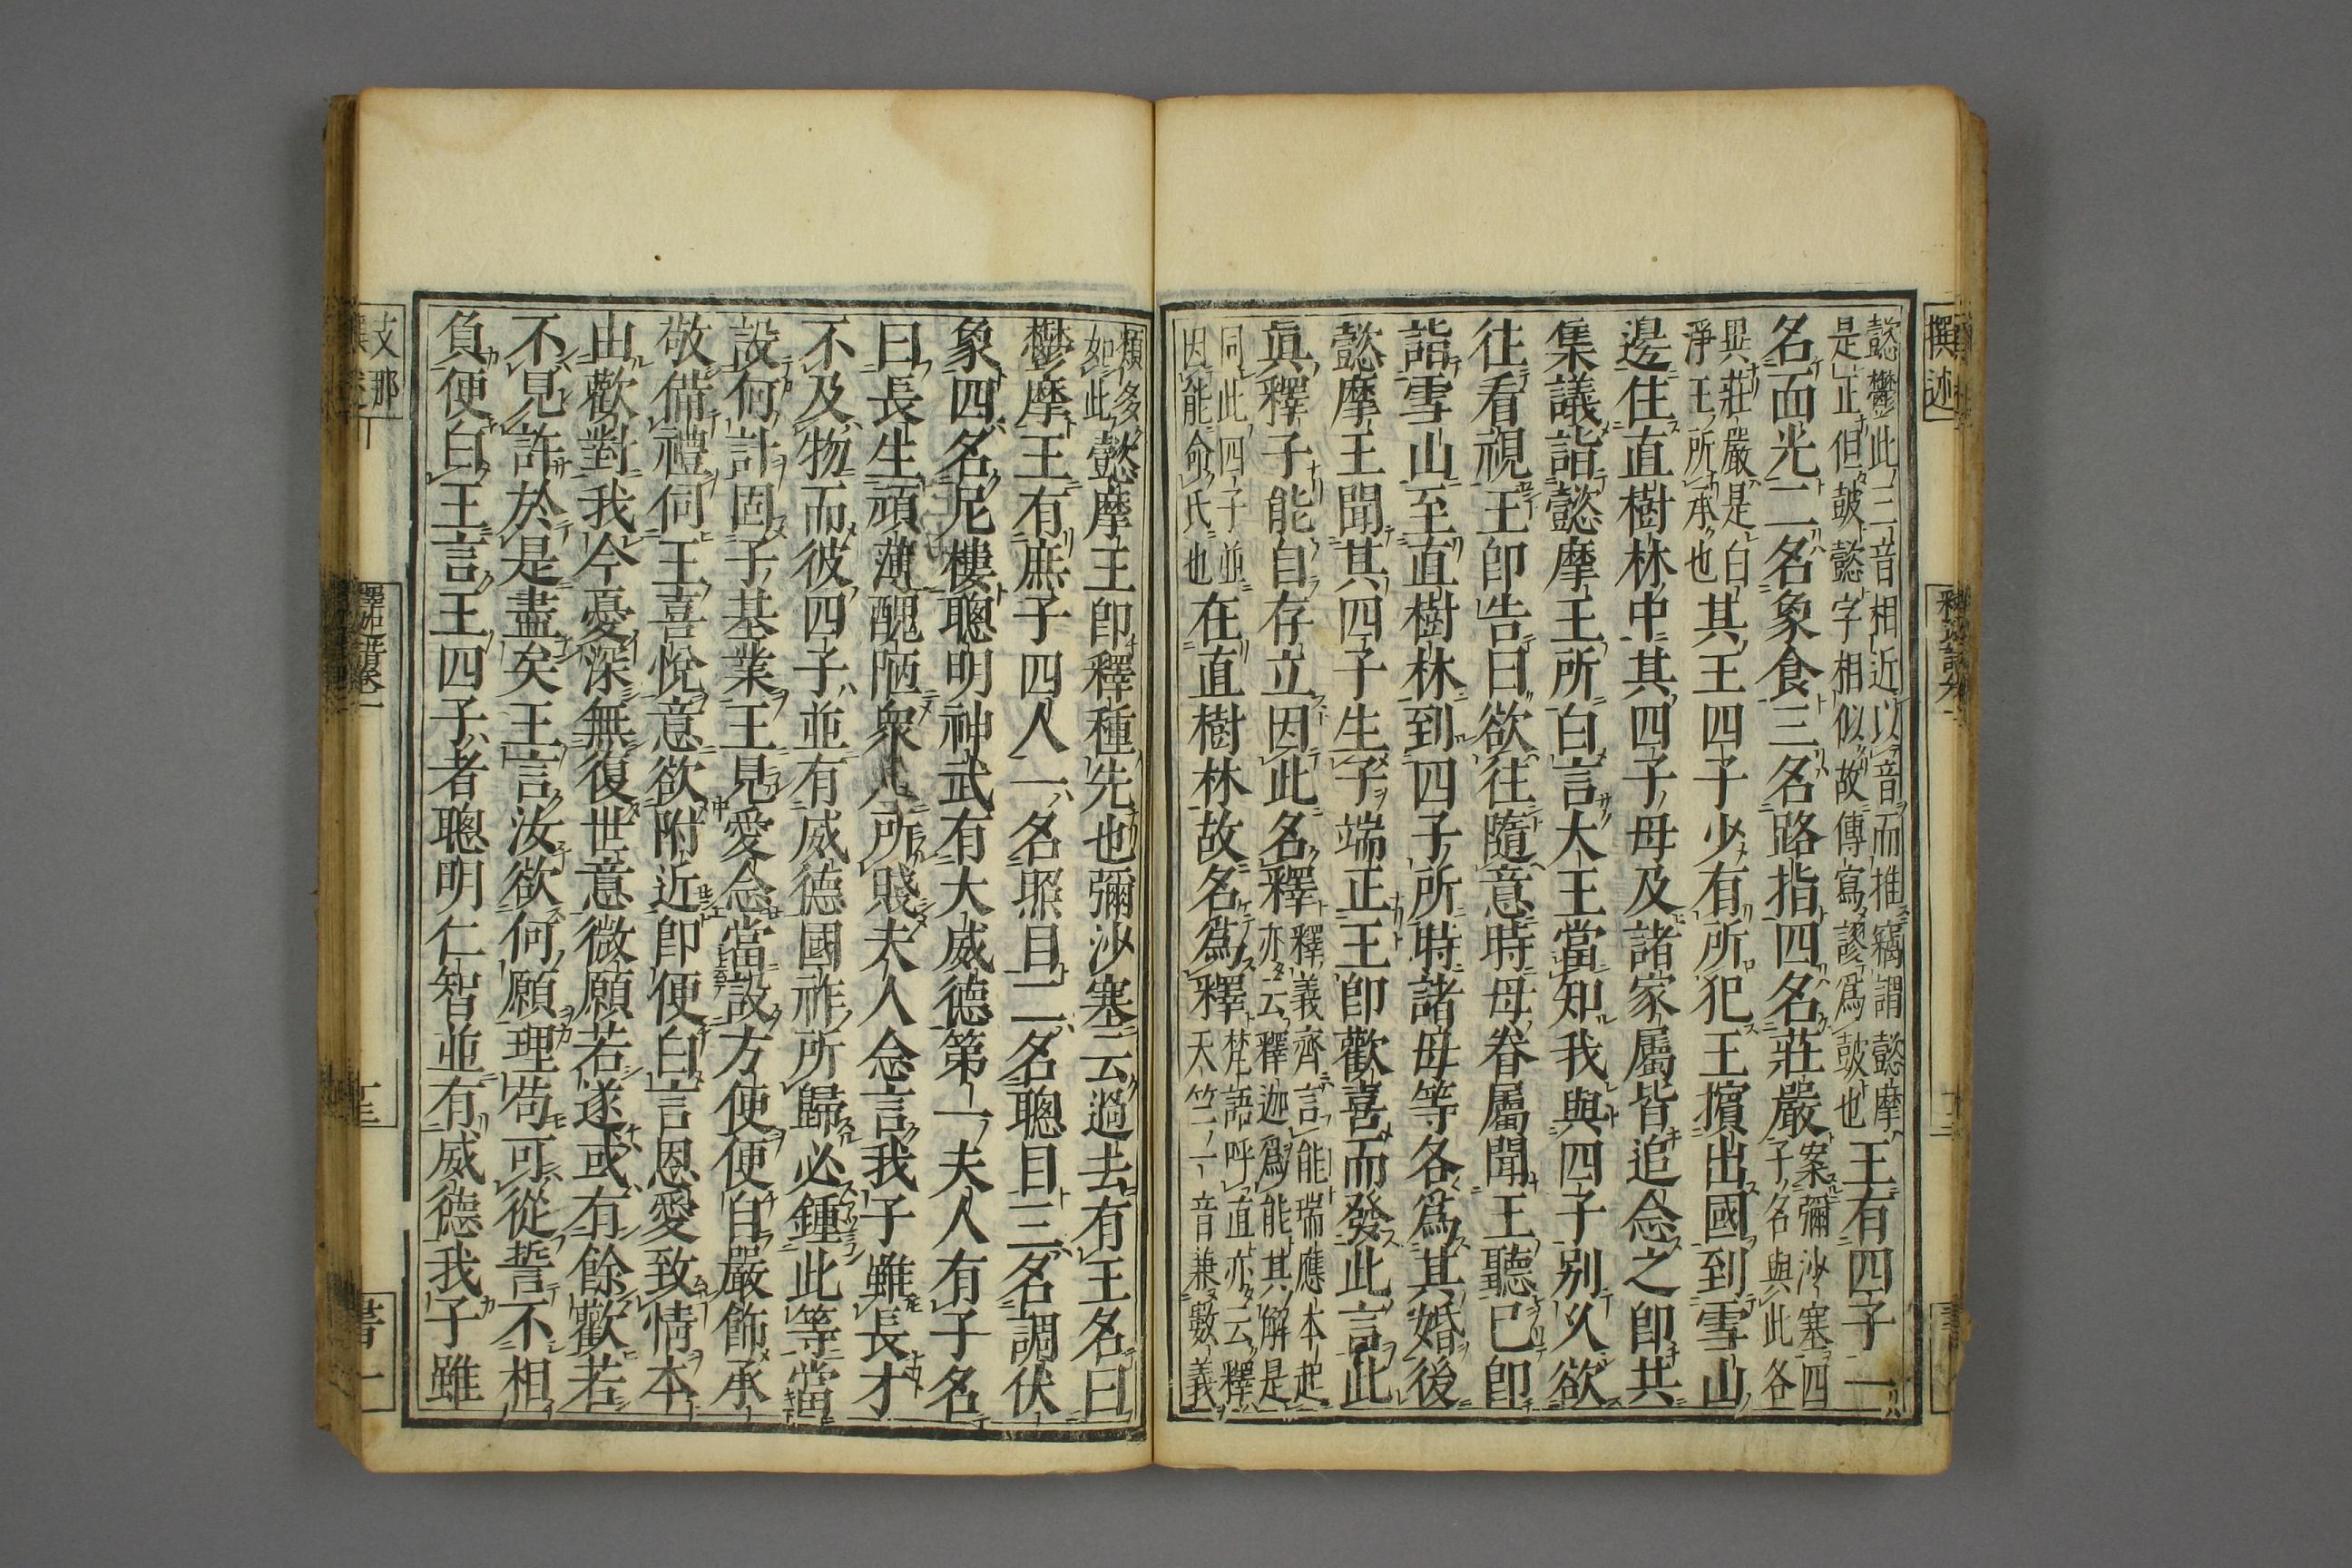 懿鬱此三音相近以音而推竊謂懿摩
是正但鼓懿字相似故傳寫謬爲鼓也
王有四子一
名面光二名象食三名路指四名莊嚴
案彌沙塞四
子名與此各
異莊嚴是白
淨王所承也
其王四子少有所犯王擯出國到雪山
邊住直樹林中其四子母及諸家屬皆追念之即共
集議詣懿摩王所白言大王當知我與四子別久欲
往看視王即告曰欲往隨意時母眷屬聞王聽已即
詣雪山至直樹林到四子所時諸母等各爲其婚後
懿摩王聞其四子生子端正王即歡喜而發此言此
真釋子能自存立因此名釋
釋義齊言能瑞應本起
亦云釋迦爲能其解是
同此四子並
因能命氏也
在直樹林故名爲釋
梵語呼直亦云釋
天竺一音兼數義
類多
如此
懿摩王即釋種先也彌沙塞云過去有王名曰
鬱摩王有庶子四人一名照目二名聰目三名調伏
象四名尼樓聰明神武有大威德第一夫人有子名
曰長生頑薄醜陋衆人所賤夫人念言我子雖長才
不及物而彼四子並有威德國祚所歸必鍾此等當
設何計固子基業王見愛念當設方便便自嚴飾承
敬備禮伺王喜悅意欲附近即便白言恩愛致情本
由歡對我今憂深無復世意微願若遂或有餘歡若
不見許於是盡矣王言汝欲何願理苟可從誓不相
負便白王言王四子者聰明仁智並有威德我子雖
撰述
支那
釋迦譜卷一